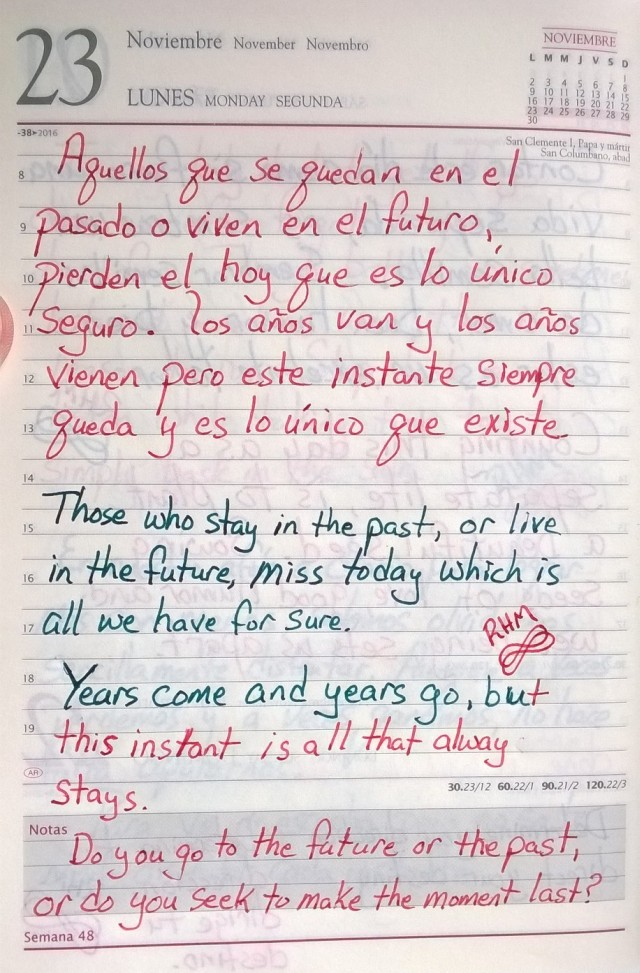 23
Noviembre November Novembro
LUNES MONDAY SEGUNDA
NOVIEMBRE
L M M J V S D
1
2 3 4 5 6 7 8
9 10 11 12 13 14 15
16 17 18 19 20 21 22
23 24 25 26 27 28 29
30
-38>2016
San Clemente I, Papa y mártir
San Columbano, abad
8 Aquellos que se quedan en el
9 pasado o viven en el futuro,
10 pierden el hoy que es lo único
11 Seguro. los años van y los años
12 vienen pero este instante Siempre
13 queda y es lo único que existe
14
15 Those who stay in the past, or live
16 in the future, miss today which is
17 all we have for sure.
RHM
18 Years come and years go, but
19 this instant is all that alway
AR
stays.
30.23/12 60.22/1 90.21/2 120.22/3
Notas
Do you go to the future or the past,
or do you seek to make the moment last?
Semana 48